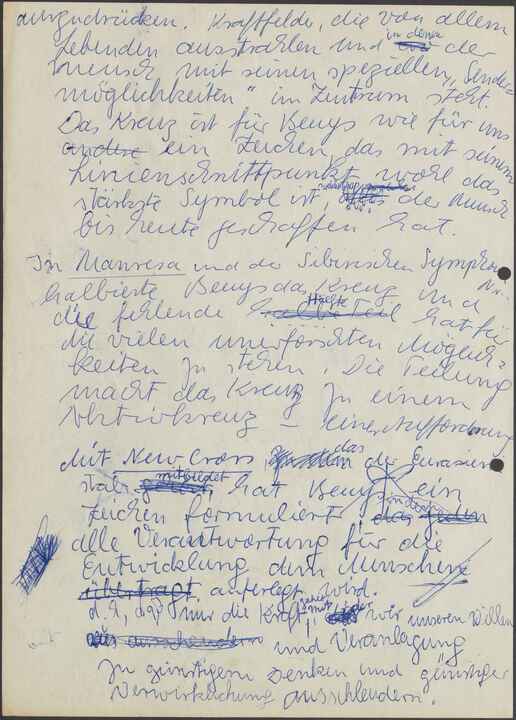 auszudrücken. Kraftfelde, die von allem
Lebenden ausstrahlen und in denen der
Mensch mit seinen speziellen „Sende=
möglichkeiten" im Zentrum steht.
Das Kreuz ist für Beuys wie für uns
andere ein Zeichen, das mit seinem
Linienschnittpunkt wohl das
stärkste Symbol ist, der Mensch
bis heute geschaffen hat.
In Manresa und der Sibirischen Symphonie
halbierte Beuys das Kreuz und
die fehlende Hälfte hat für
die vielen unerforschten Möglich=
keiten zu stehen. Die Teilung
macht das Kreuz zu einem
Aktivkreuz – einer Aufforderung
Mit New Cross, das der Eurasien
stab mitbildet, hat Beuys ein
Zeichen formuliert,
alle Verantwortung für die
Entwicklung dem Menschen
übertragt auferlegt wird.
d.h., daß nur die Kraft wir unseren Willen
und Veranlagung
zu günstigem Denken und günstiger
Verwirklichung ausschleudern.